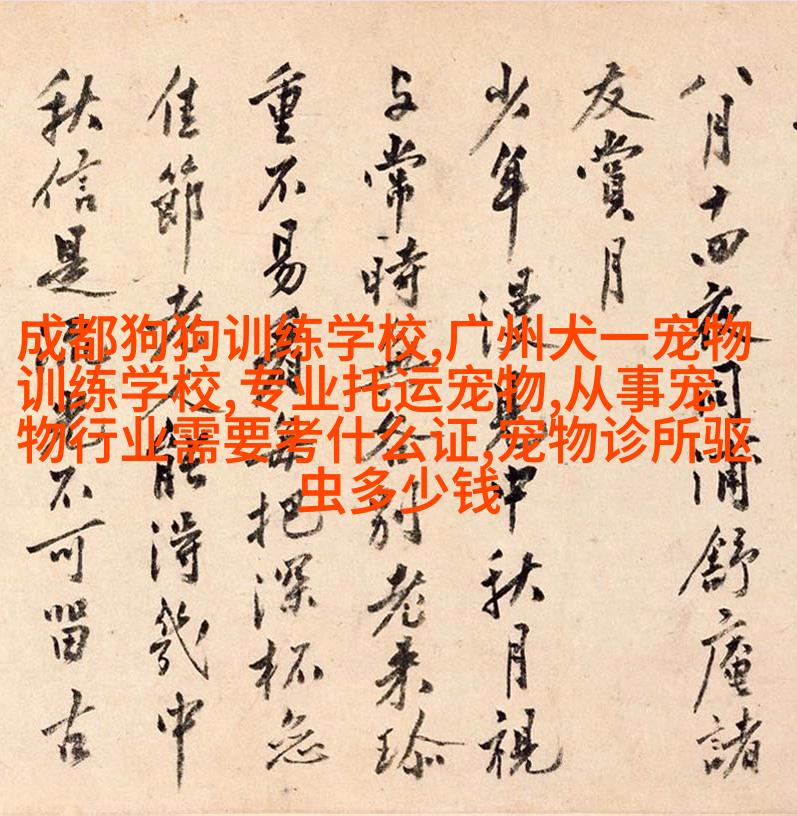 八月十四夜同浦舒庵諸
友賞月
少年漫見中秋月視
与常時無各別老来珍
重不易看每把深杯
佳節老人能得幾中
秋信是流光不可留古
成都狗狗训练学校,广州犬一宠物
训练学校,专业托运宠物,从事宠
物行业需要考什么证,宠物诊所驱
虫多少钱